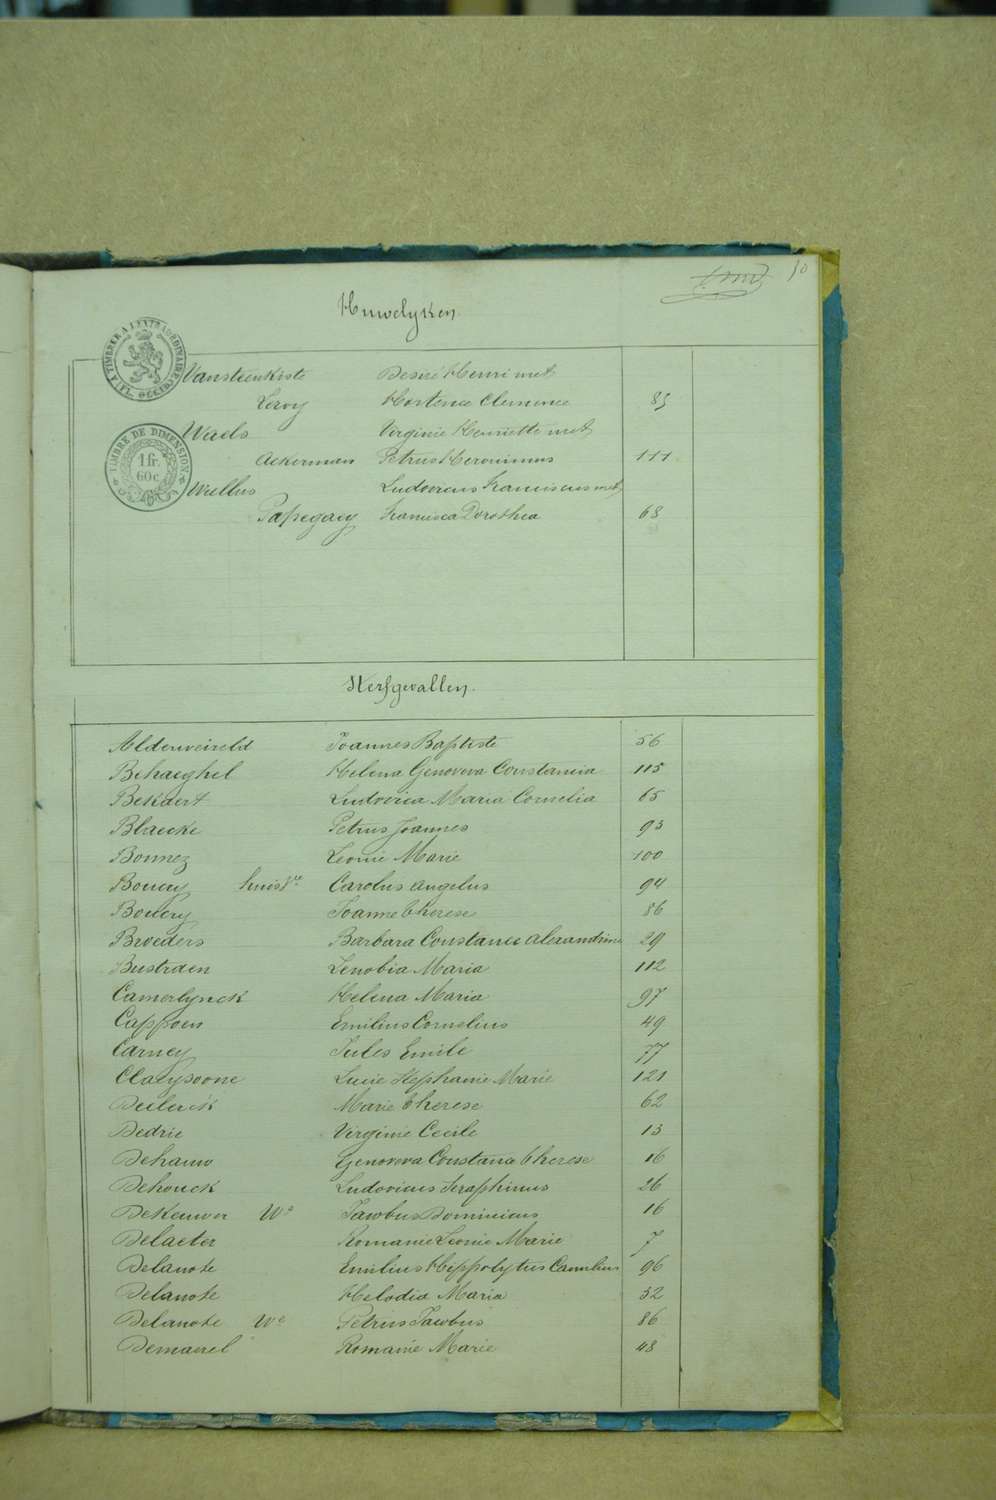 10
Huwelyken.
Vansteenkiste Desiré Henri met
Leroy Hortence Clemence 85
Waels Virginie Henriette met
Ackerman Petrus Hieronimus 111
Wullus Ludovicus Franciscus met
Papegaey Francisca Dorothea 68
TIMBRE DE DIMENSION
1 fr.
60 c.
Sterfgevallen.
Alderweireld Joannes Baptiste 56
Behaeghel Helena Genoveva Constancia 115
Bekaert Ludovica Maria Cornelia 65
Blaecke Petrus Joannes 93
Bonnez Leonie Marie 100
Boucry huisvr Carolus Angelus 94
Boucry Joanne Therese 86
Broeders Barbara Constance Alexandrine 29
Bustraen Zenobia Maria 112
Camerlynck Helena Maria 97
Cappoen Emilius Cornelius 49
Carney Jules Emile 77
Claeysoone Lucie Stephanie Marie 121
Declerck Marie Therese 62
Dedrie Virginie Cecile 13
Dehauw Genoveva Constantia Therese 16
Dehouck Ludovicus Seraphinus 26
We Jacobus Dominicus 16
Delaeter Romanie Leonie Marie 7
Delanote Emilius Hippolytus Camilius 96
Delanote Helodia Maria 32
Delanote We Petrus Jacobus 86
Demaerel Romanie Marie 48